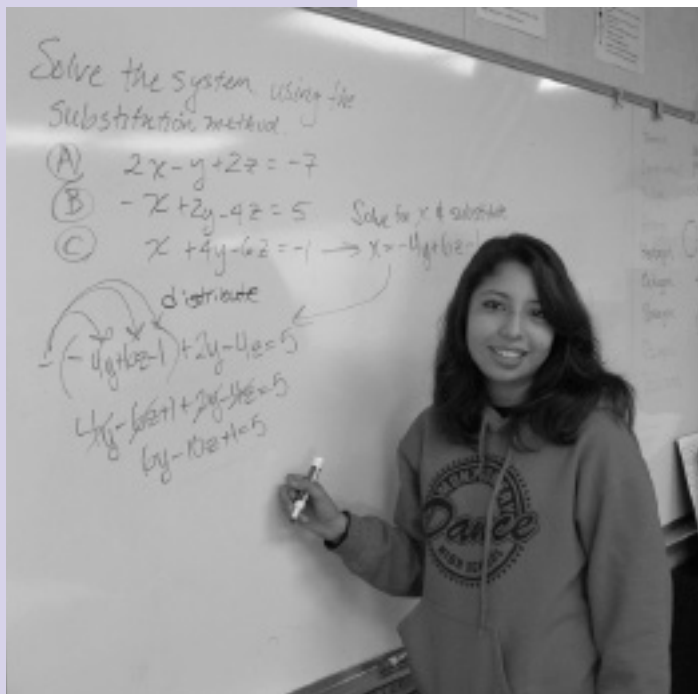 Solve the system using the
substitution method.
(A) 2x-y+2z=-7
(B) -x+2y-4z=5
Solve for x & substitute
(C) x+4y-6z=-1 → x=-4y+6z-1
distribute
-(-4y+6z-1)+2y-4z=5
4y-6z+1+2y-4z=5
6y-10z+1=5
Dance
HIGH SCHOOL